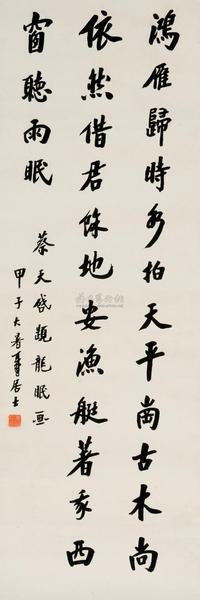 鴻雁歸時水拍天平崗古木尚
依然借君餘地安漁艇著我西
窗聽雨眠
蔡天啓題龍眠画
甲子大暑 居士